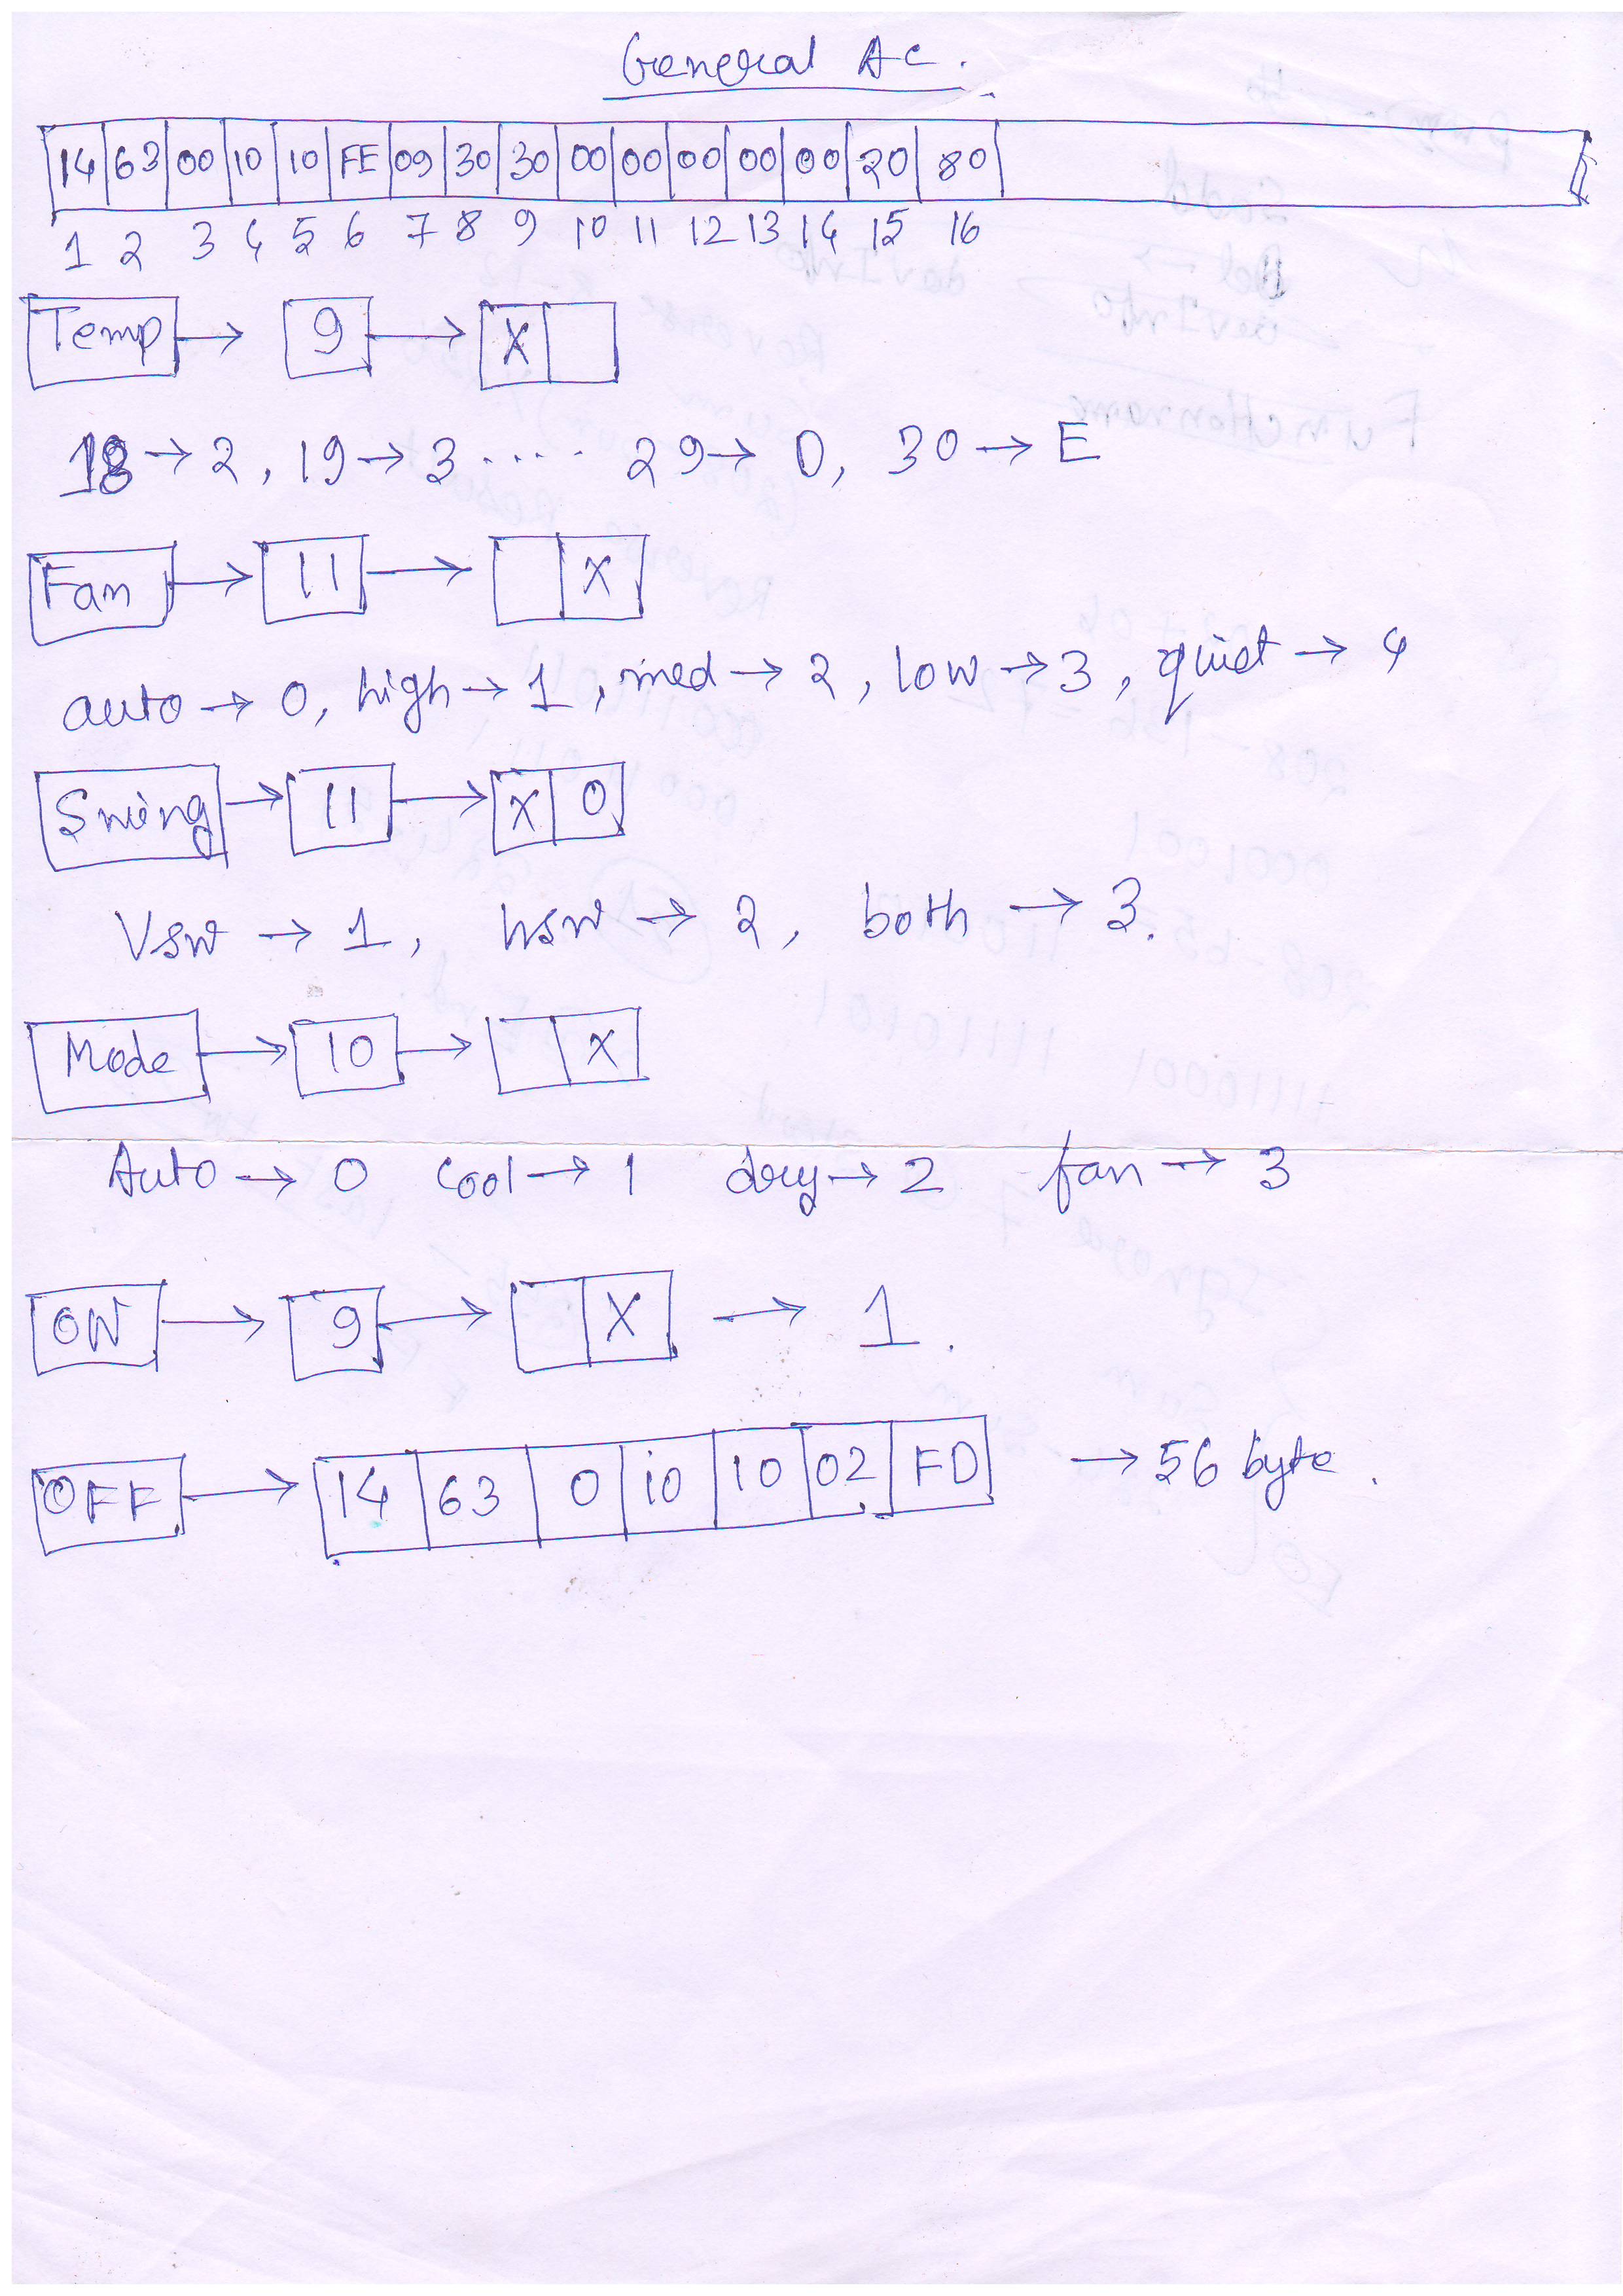 General AC.
14 63 00 10 10 FE 09 30 30 00 00 00 00 00 20 80
1 2 3 4 5 6 7 8 9 10 11 12 13 14 15 16
Temp → 9 → X
18 → 2, 19 → 3 ..... 29 → D, 30 → E
Fan → 11 → X
auto → 0, high → 1, med → 2, low → 3, quiet → 4
Swing → 11 → X 0
Vsw → 1, hsw → 2, both → 3.
Mode → 10 → X
Auto → 0 cool → 1 dry → 2 fan → 3
ON → 9 → X → 1.
OFF → 14 63 0 10 10 02 FD → 56 byte.